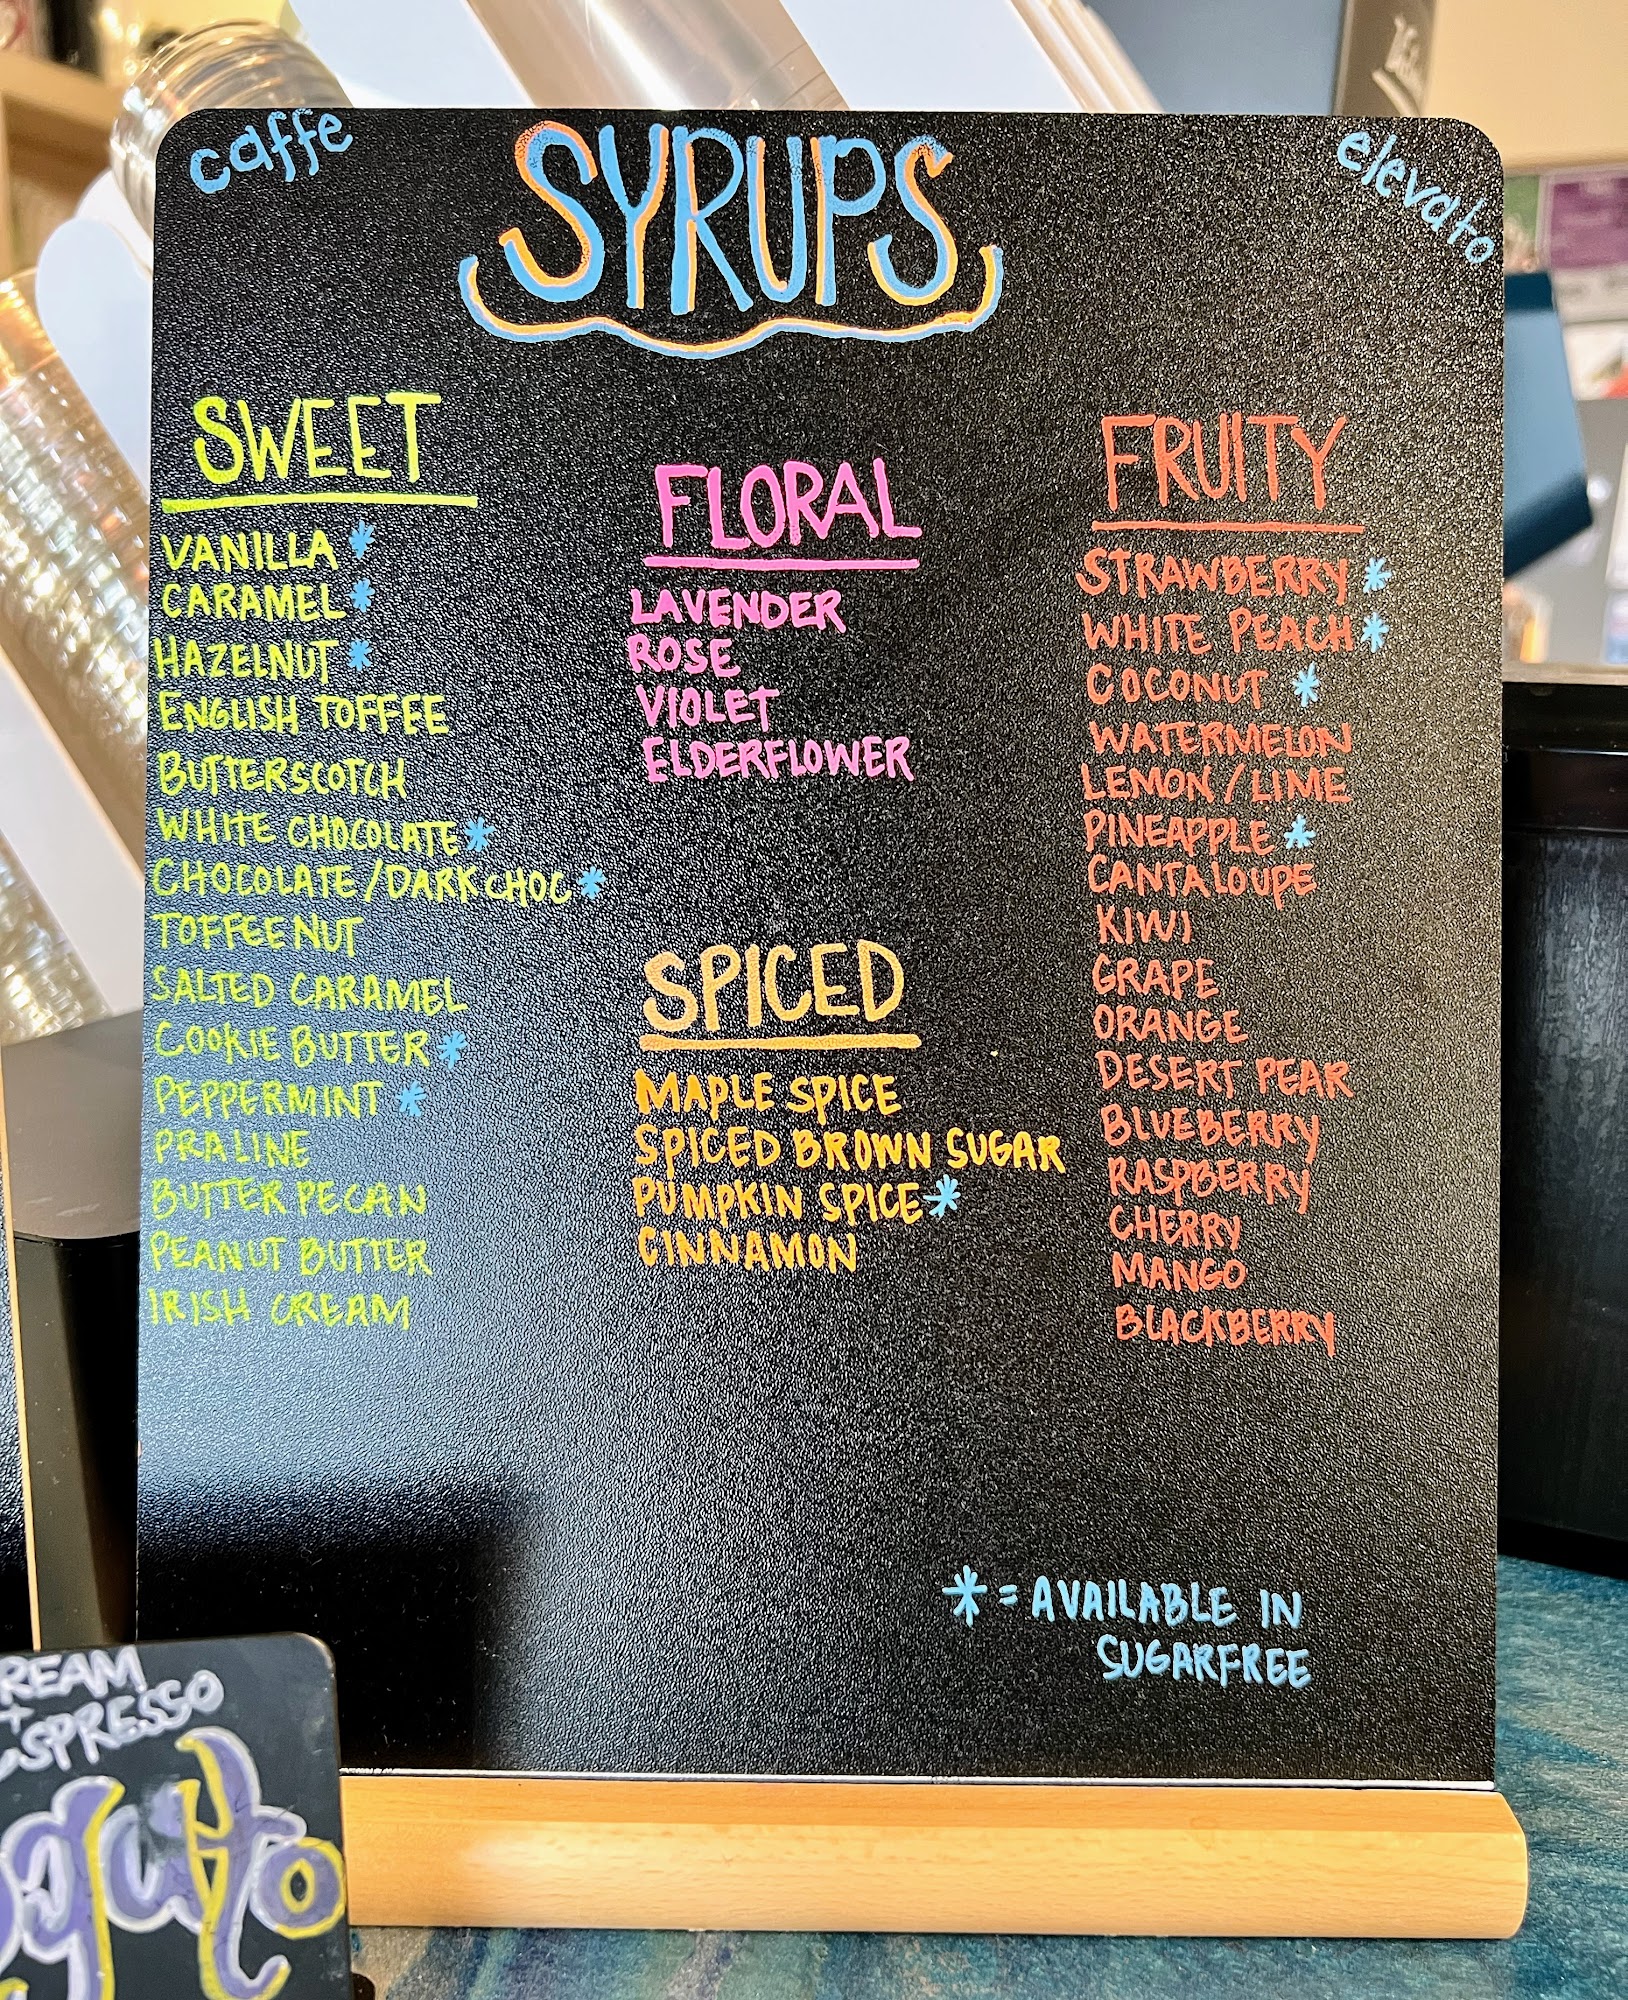 caffe
SYRUPS
elevato
SWEET
VANILLA *
CARAMEL *
HAZELNUT *
ENGLISH TOFFEE
BUTTERSCOTCH
WHITE CHOCOLATE *
CHOCOLATE/DARK CHOC *
TOFFEE NUT
SALTED CARAMEL
COOKIE BUTTER *
PEPPERMINT *
PRALINE
BUTTER PECAN
PEANUT BUTTER
IRISH CREAM
FLORAL
LAVENDER
ROSE
VIOLET
ELDERFLOWER
SPICED
MAPLE SPICE
SPICED BROWN SUGAR
PUMPKIN SPICE *
CINNAMON
FRUITY
STRAWBERRY *
WHITE PEACH *
COCONUT *
WATERMELON
LEMON / LIME
PINEAPPLE *
CANTALOUPE
KIWI
GRAPE
ORANGE
DESERT PEAR
BLUEBERRY
RASPBERRY
CHERRY
MANGO
BLACKBERRY
* = AVAILABLE IN
SUGARFREE
REAM
+
ESPRESSO